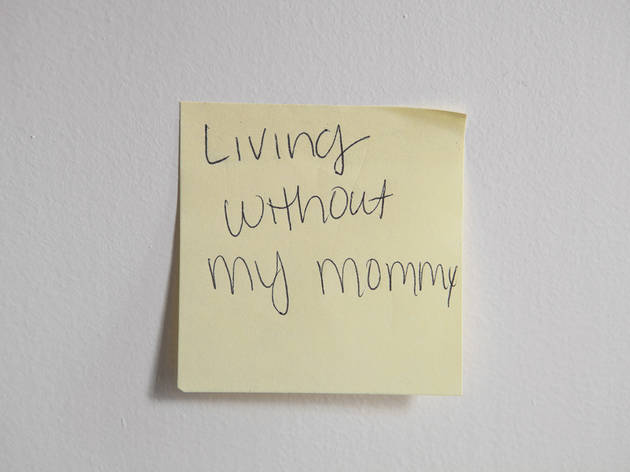 Living
without
my mommy